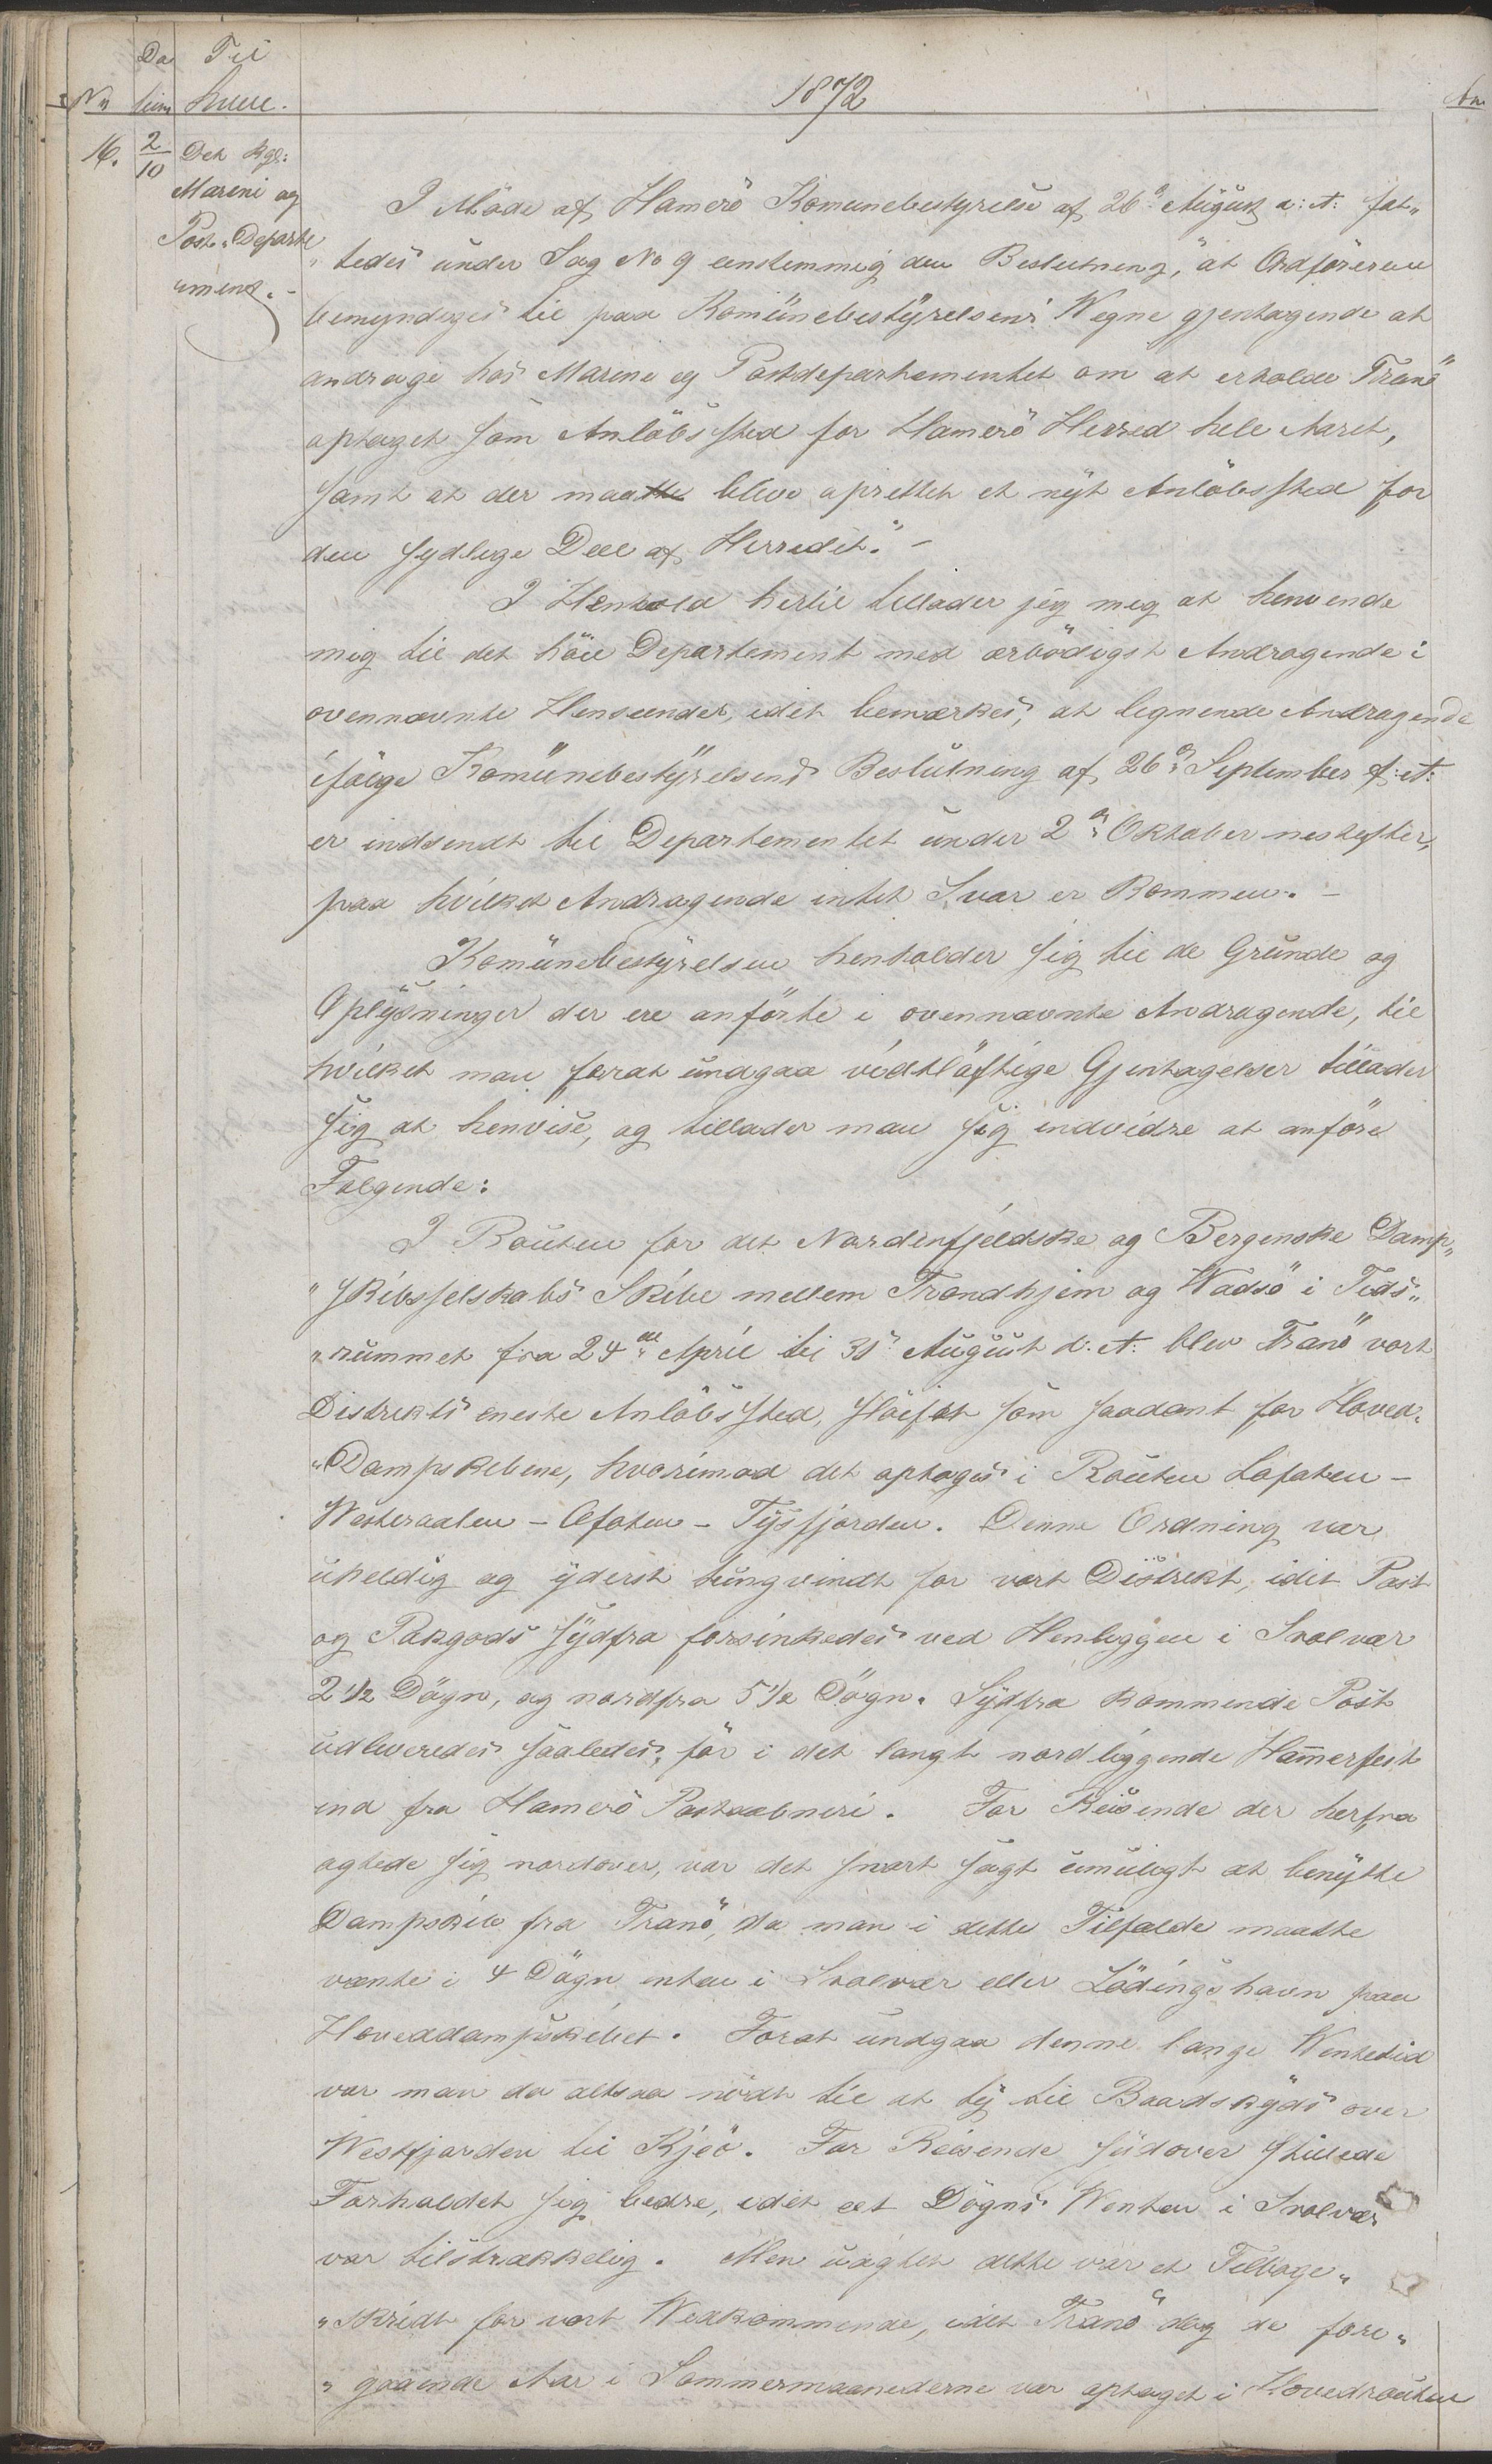 Da Til
No tum hvem.
1872
16. 2/10 Det kgl:
Marine og
Post-Departe
ment.-
I Möde af Hamerö Komunebestyrelse af 26d August a: A: fat„
„tedes under Sag No 9 eenstemmig den Beslutning, "at Ordföreren
bemyndiges til paa Komunebestyrelsens Wegne gjentagende at
andrage hos Marine og Postdepartementet om at erholde Tranö
optaget som Anlöbssted for Hamerö Herred hele Aaret,
samt at der maatte blive oprettet et nyt Anlöbssted for
den sydlige Deel af Herredet." -
I Henhold hertil tillader jeg mig at henvende
mig til det höie Departement med ærbödigst Andragende i
ovennævnte Henseender, idet bemærkes, at lignende Andragende
ifölge Komunebestyrelsens Beslutning af 26d September f: A:
er indsendt til Departementet under 2d Oktober nestefter,
paa hvilket Andragende intet Svar er kommen. -
Komunebestyrelsen henholder sig til de Grunde og
Oplysninger der ere anförte i ovennævnte Andragende, til
hvilket man forat undgaa vidtlöftige Gjentagelser tillader
sig at henvise, og tillader man sig indvidre at anföre
Fölgende:
I Routen for det Nordenfjeldske og Bergenske Damp„
„skibsselskabs Skibe mellem Trondhjem og Wadsö i Tids„
„rummet fra 24de April til 31s August d: A: blev Tranö vort
Distrikts eneste Anlöbssted, slöifet som saadant for Hoved„
„Dampskibene, hvorimod det optoges i Routen Lofoten -
Westeraalen - Ofoten - Tysfjorden. Denne Ordning var
uheldig og yderst tungvindt for vort Distrikt, idet Post
og Pakgods sydfra forsinkedes ved Henliggen i Svolvær
2 1/2 Dögn, og nordfra 5 1/2 Dögn. Sydfra kommende Post
udleveredes saaledes, för i det langt nordliggende Hamerfest
end fra Hamerö Postaabneri. For Reisende der herfra
agtede sig nordover, var det snart sagt umuligt at benytte
Dampskib fra Tranö, da man i dette Tilfælde maatte
vente i 4 Dögn enten i Svolvær eller Lödingshavn paa
Hoveddampskibet. Forat undgaa denne lange Wentetid
var man da altsaa nödt til at ty til Baadskyds over
Westfjorden til Kjeö. For Reisende sudover stillede
Forholdet sig bedre, idet eet Dögns Wenten i Svolvær
var tilstrækkelig. Men uagtet dette var et Tilbage„
„skridt for vort Wedkommende, idet Tranö dog de fore„
„gaaende Aar i Sommermaanederne var optaget i Hovedrouten